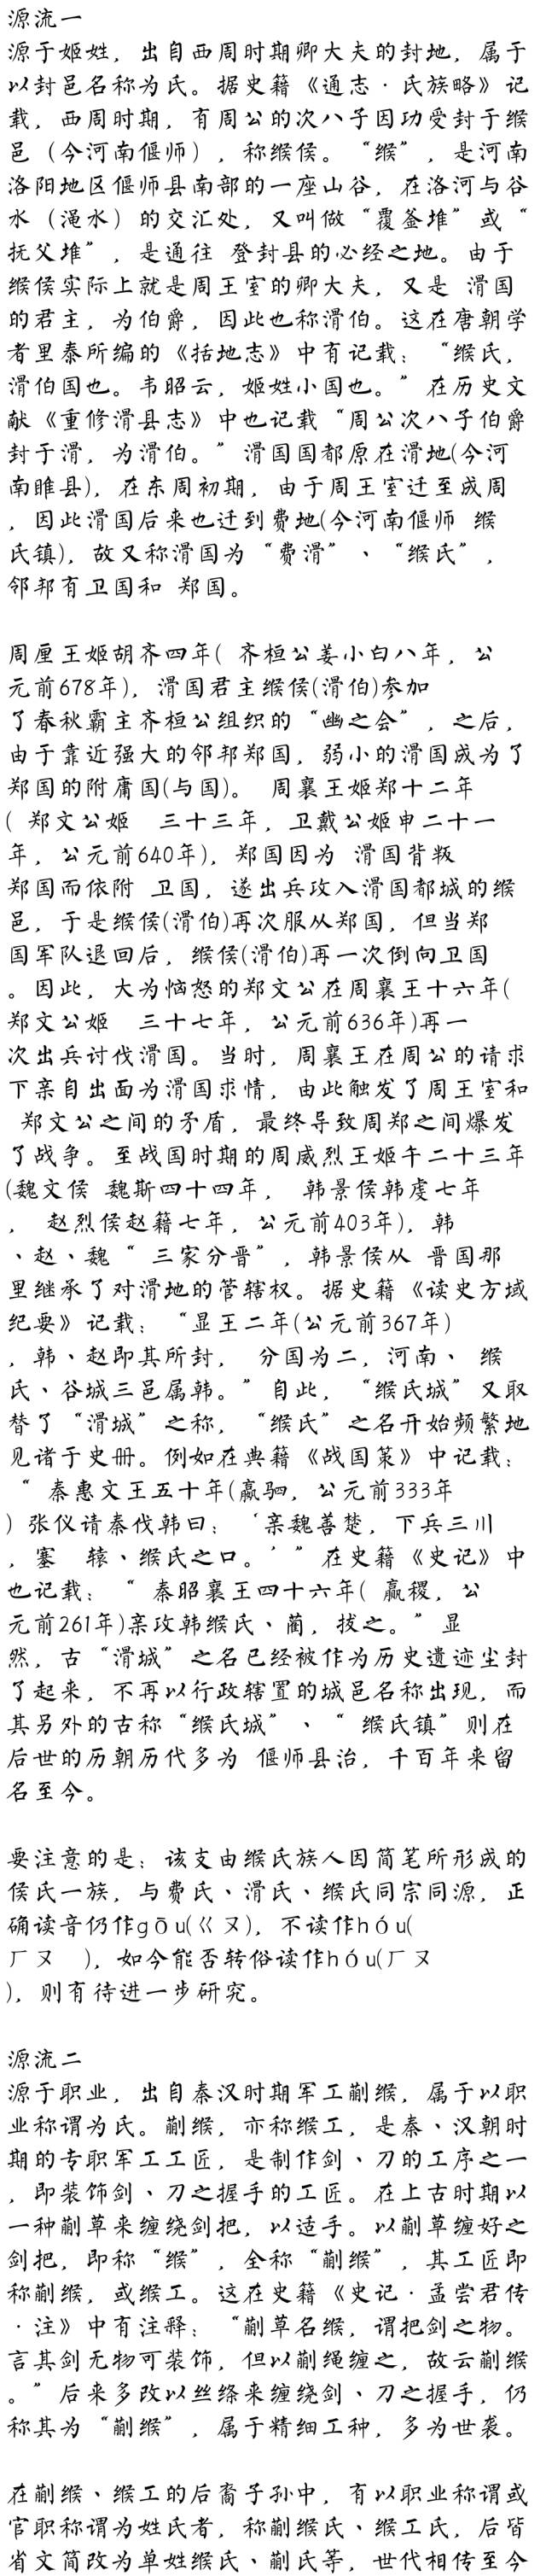 源流一
源于姬姓，出自西周时期卿大夫的封地，属于
以封邑名称为氏。据史籍《通志·氏族略》记
载，西周时期，有周公的次八子因功受封于缑
邑（今河南偃师），称缑侯。“缑”，是河南
洛阳地区偃师县南部的一座山谷，在洛河与谷
水（渑水）的交汇处，又叫做“覆釜堆”或“
抚父堆”，是通往 登封县的必经之地。由于
缑侯实际上就是周王室的卿大夫，又是 滑国
的君主，为伯爵，因此也称滑伯。这在唐朝学
者里泰所编的《括地志》中有记载：“缑氏，
滑伯国也。韦昭云，姬姓小国也。”在历史文
献《重修滑县志》中也记载“周公次八子伯爵
封于滑，为滑伯。”滑国国都原在滑地(今河
南睢县)，在东周初期，由于周王室迁至成周
，因此滑国后来也迁到费地(今河南偃师 缑
氏镇)，故又称滑国为“费滑”、“缑氏”，
邻邦有卫国和 郑国。
周厘王姬胡齐四年( 齐桓公姜小白八年，公
元前678年)，滑国君主缑侯(滑伯)参加
了春秋霸主齐桓公组织的“幽之会”，之后，
由于靠近强大的邻邦郑国，弱小的滑国成为了
郑国的附庸国(与国)。 周襄王姬郑十二年
( 郑文公姬　三十三年，卫戴公姬申二十一
年，公元前640年)，郑国因为 滑国背叛
郑国而依附 卫国，遂出兵攻入滑国都城的缑
邑，于是缑侯(滑伯)再次服从郑国，但当郑
国军队退回后，缑侯(滑伯)再一次倒向卫国
。因此，大为恼怒的郑文公在周襄王十六年(
郑文公姬　三十七年，公元前636年)再一
次出兵讨伐滑国。当时，周襄王在周公的请求
下亲自出面为滑国求情，由此触发了周王室和
 郑文公之间的矛盾，最终导致周郑之间爆发
了战争。至战国时期的周威烈王姬午二十三年
(魏文侯 魏斯四十四年， 韩景侯韩虔七年
， 赵烈侯赵籍七年，公元前403年)，韩
、赵、魏“ 三家分晋”，韩景侯从 晋国那
里继承了对滑地的管辖权。据史籍《读史方域
纪要》记载：“显王二年(公元前367年)
，韩、赵即其所封， 分国为二，河南、 缑
氏、谷城三邑属韩。”自此，“缑氏城”又取
替了“滑城”之称，“缑氏”之名开始频繁地
见诸于史册。例如在典籍《战国策》中记载：
“ 秦惠文王五十年(嬴驷，公元前333年
) 张仪请秦伐韩曰：‘亲魏善楚，下兵三川
，塞　辕、缑氏之口。’”在史籍《史记》中
也记载：“ 秦昭襄王四十六年( 嬴稷，公
元前261年)亲攻韩缑氏、蔺，拔之。”显
然，古“滑城”之名已经被作为历史遗迹尘封
了起来，不再以行政辖置的城邑名称出现，而
其另外的古称“缑氏城”、“ 缑氏镇”则在
后世的历朝历代多为 偃师县治，千百年来留
名至今。
要注意的是：该支由缑氏族人因简笔所形成的
侯氏一族，与费氏、滑氏、缑氏同宗同源，正
确读音仍作gōu(ㄍㄡ)，不读作hóu(
ㄏㄡ　)，如今能否转俗读作hóu(ㄏㄡ
)，则有待进一步研究。
源流二
源于职业，出自秦汉时期军工蒯缑，属于以职
业称谓为氏。蒯缑，亦称缑工，是秦、汉朝时
期的专职军工工匠，是制作剑、刀的工序之一
，即装饰剑、刀之握手的工匠。在上古时期以
一种蒯草来缠绕剑把，以适手。以蒯草缠好之
剑把，即称“缑”，全称“蒯缑”，其工匠即
称蒯缑，或缑工。这在史籍《史记·孟尝君传
·注》中有注释：“蒯草名缑，谓把剑之物。
言其剑无物可装饰，但以蒯绳缠之，故云蒯缑
。”后来多改以丝绦来缠绕剑、刀之握手，仍
称其为“蒯缑”，属于精细工种，多为世袭。
在蒯缑、缑工的后裔子孙中，有以职业称谓或
官职称谓为姓氏者，称蒯缑氏、缑工氏，后皆
省文简改为单姓缑氏、蒯氏等，世代相传至今